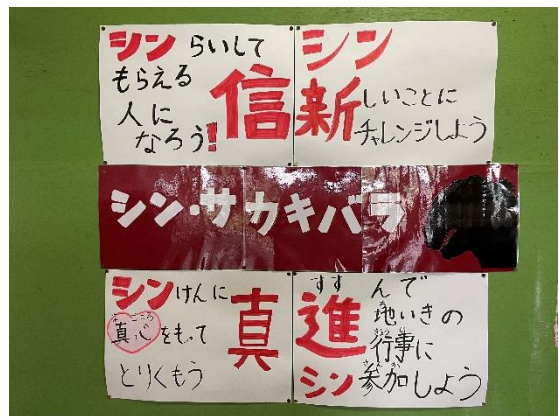 シンらいして
もらえる
人に
なろう!
信
シン
新しいことに
チャレンジしよう
シン・サカキバラ
シンけんに
真心をもって
まごころ
とりくもう
真
すす
進んで
地いきの
行事に
シン参加しよう